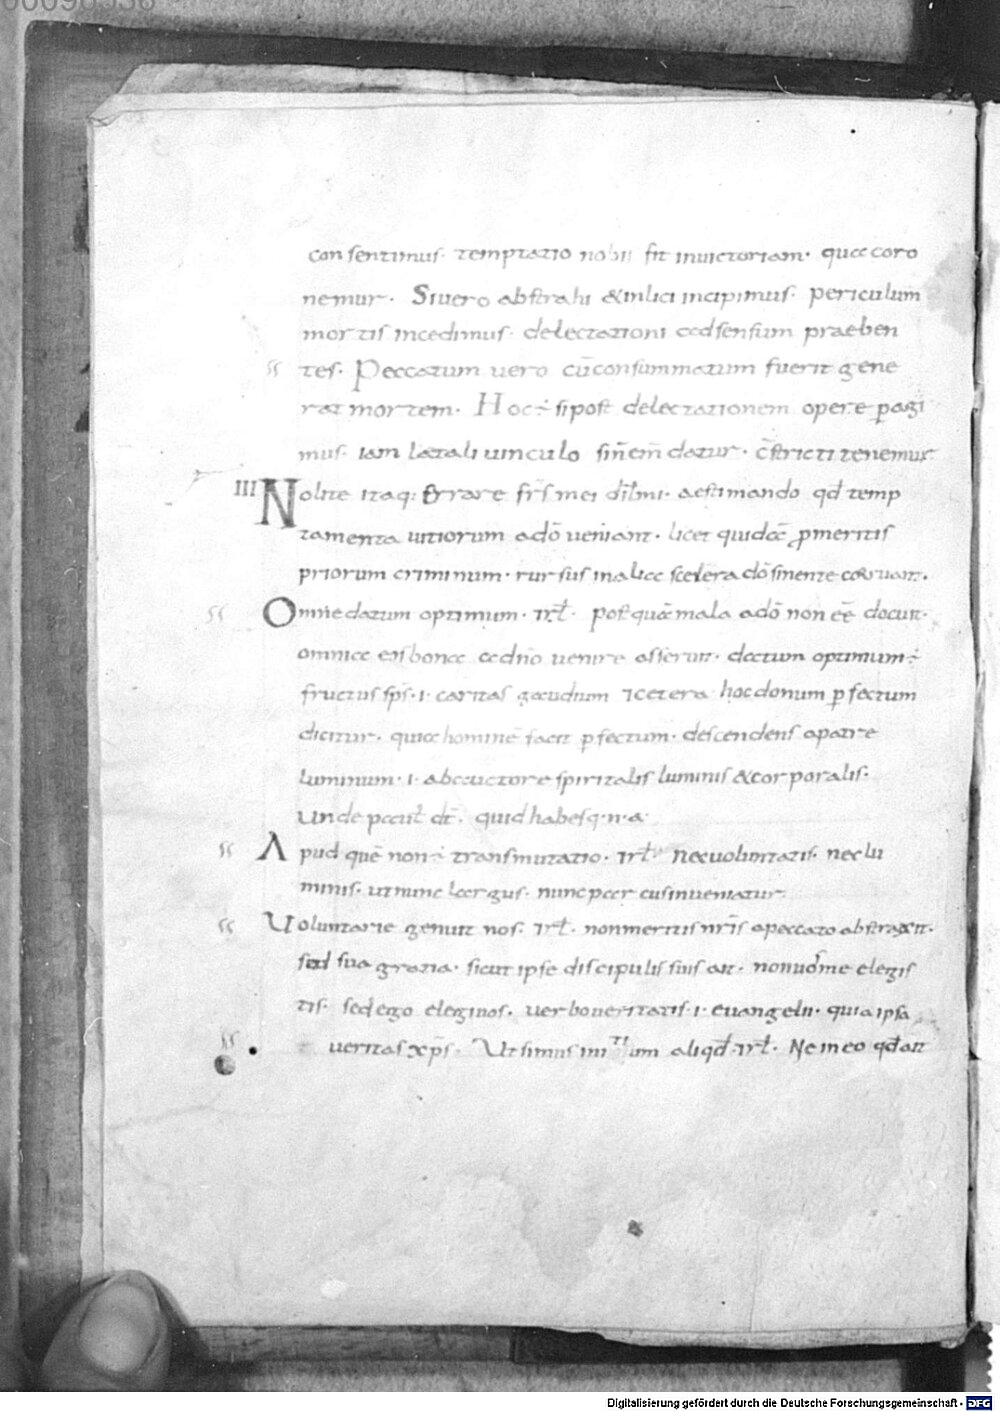 00096538
consentimus· temptatio nobis fit inuictoriam· quacoro
nemur· Siuero abstrahi &inlici incipimus· periculum
mortis incedimus· delectationi adsensum praeben
tes· Peccatum uero cū consummatum fuerit gene
rat mortem· Hoc ÷ sipost delectationem opere p̲agi
mus· iam laetali uinculo datur· c̄stricti tenemur
III Nolite itaq: errare fr̄s mei dil̄mi· aestimando qđ temp
tamenta uitiorum adō ueniant· licet quidā p̱meritis
priorum criminum· rursus inalia scelera dō sinente corruant·
Omne datum optimum· rł· postquā mala adō non eē docuit·
omnia eis bona adnō uenire asserit· datum optimum ÷
fructus sp̄s· i· caritas gaudium 7cetera hoc donum p̲fectum
dicitur· quia hominē facit p̲fectum· descendens apatre
luminum· i· abauctore spiritalis luminis &corporalis·
Unde paul̄ dt̄· quid habes q·n·a·
Apud quē non ÷ transmutatio· rł· Nec uoluntatis· neclu
minis· utnunc largus· nunc parcus inueniatur·
Uoluntarie genuit nos· rł· nonmeritis nr̄is apeccato abstraxit·
sed sua gratia· sicut ipse discipulis suis ait· nonuosme elegis
tis· sedego elegiuos· uerboueritatis· i· euangelii· quia ipsa
ueritas xp̄s· Ut simus initium aliqđ· rł· Ne in eo qđ ait
Digitalisierung gefördert durch die Deutsche Forschungsgemeinschaft - DFG